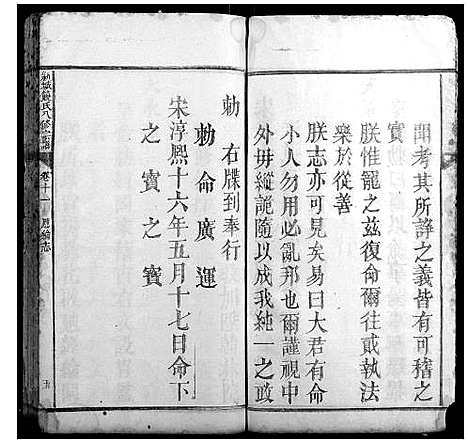 聞考其所諍之義皆有可稽之
實
朕惟寵之茲復命爾往貳執法
樂於從善
朕志亦可見矣易曰大君有命
小人勿用必亂邦也爾謹視中
外毋縱詭隨以成我純一之政
勅
右牒到奉行
勅命廣運
宋淳熙十六年五月十七日命下
之寶之寶
卷十一
五